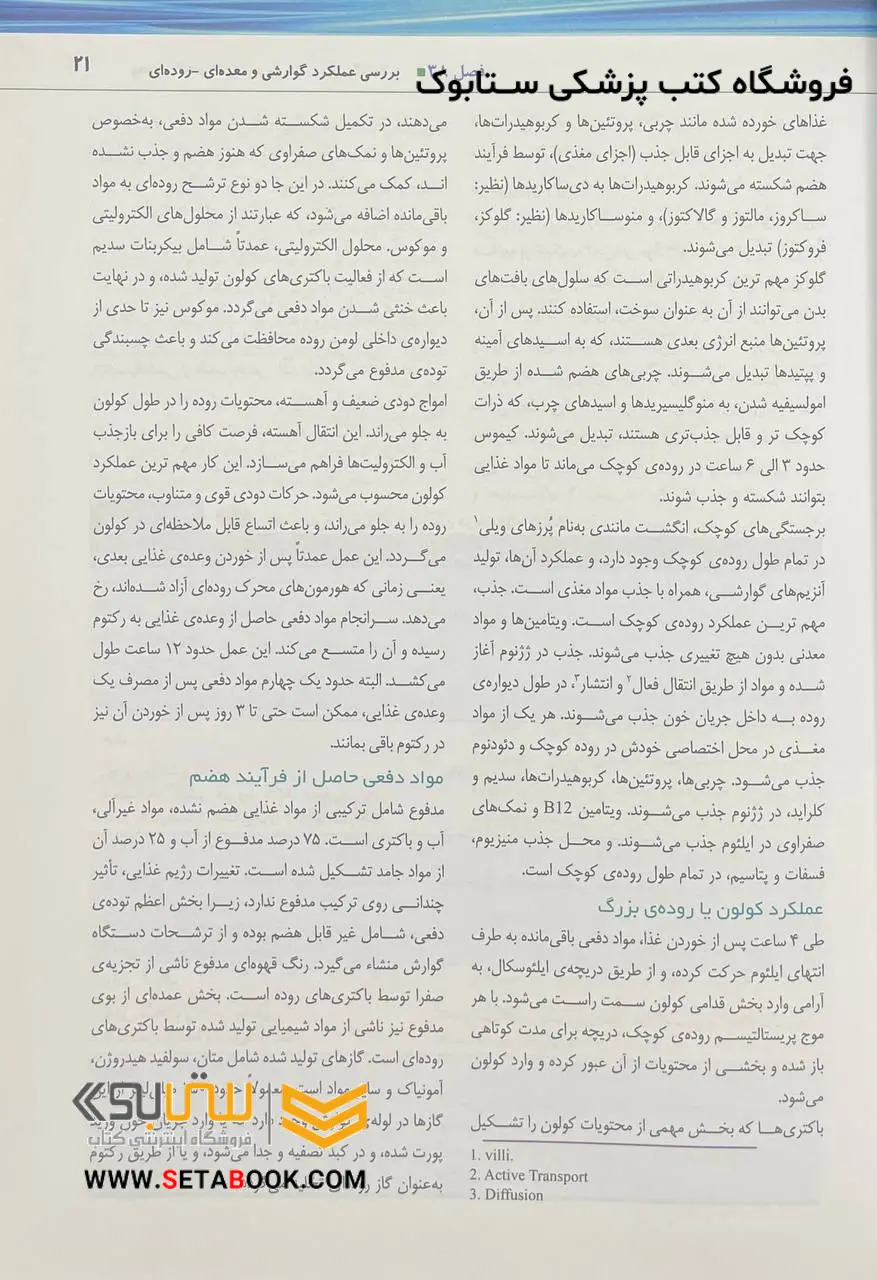 فروشگاه کتب پزشکی ستابوک
فصل ۳۸ ■ بررسی عملکرد گوارشی و معده‌ای -روده‌ای
۲۱
غذاهای خورده شده مانند چربی، پروتئین‌ها و کربوهیدرات‌ها،
جهت تبدیل به اجزای قابل جذب (اجزای مغذی)، توسط فرآیند
هضم شکسته می‌شوند. کربوهیدرات‌ها به دی‌ساکاریدها (نظیر:
ساکروز، مالتوز و گالاکتوز)، و منوساکاریدها (نظیر: گلوکز،
فروکتوز) تبدیل می‌شوند.
گلوکز مهم ترین کربوهیدراتی است که سلول‌های بافت‌های
بدن می‌توانند از آن به عنوان سوخت، استفاده کنند. پس از آن،
پروتئین‌ها منبع انرژی بعدی هستند، که به اسیدهای آمینه
و پپتیدها تبدیل می‌شوند. چربی‌های هضم شده از طریق
امولسیفیه شدن، به منوگلیسیریدها و اسیدهای چرب، که ذرات
کوچک تر و قابل جذب‌تری هستند، تبدیل می‌شوند. کیموس
حدود ۳ الی ۶ ساعت در روده‌ی کوچک می‌ماند تا مواد غذایی
بتوانند شکسته و جذب شوند.
برجستگی‌های کوچک، انگشت مانندی به‌نام پُرزهای ویلی۱
در تمام طول روده‌ی کوچک وجود دارد، و عملکرد آن‌ها، تولید
آنزیم‌های گوارشی، همراه با جذب مواد مغذی است. جذب،
مهم ترین عملکرد روده‌ی کوچک است. ویتامین‌ها و مواد
معدنی بدون هیچ تغییری جذب می‌شوند. جذب در ژژنوم آغاز
شده و مواد از طریق انتقال فعال۲ و انتشار۳، در طول دیواره‌ی
روده به داخل جریان خون جذب می‌شوند. هر یک از مواد
مغذی در محل اختصاصی خودش در روده کوچک و دئودنوم
جذب می‌شود. چربی‌ها، پروتئین‌ها، کربوهیدرات‌ها، سدیم و
کلراید، در ژژنوم جذب می‌شوند. ویتامین B12 و نمک‌های
صفراوی در ایلئوم جذب می‌شوند. و محل جذب منیزیوم،
فسفات و پتاسیم، در تمام طول روده‌ی کوچک است.
عملکرد کولون یا روده‌ی بزرگ
طی ۴ ساعت پس از خوردن غذا، مواد دفعی باقی‌مانده به طرف
انتهای ایلئوم حرکت کرده، و از طریق دریچه‌ی ایلئوسکال، به
آرامی وارد بخش قدامی کولون سمت راست می‌شود. با هر
موج پریستالتیسم روده‌ی کوچک، دریچه برای مدت کوتاهی
باز شده و بخشی از محتویات از آن عبور کرده و وارد کولون
می‌شود.
باکتری‌ها که بخش مهمی از محتویات کولون را تشکیل
1. villi.
2. Active Transport
3. Diffusion
می‌دهند، در تکمیل شکسته شدن مواد دفعی، به‌خصوص
پروتئین‌ها و نمک‌های صفراوی که هنوز هضم و جذب نشده
اند، کمک می‌کنند. در این جا دو نوع ترشح روده‌ای به مواد
باقی‌مانده اضافه می‌شود، که عبارتند از محلول‌های الکترولیتی
و موکوس. محلول الکترولیتی، عمدتاً شامل بیکربنات سدیم
است که از فعالیت باکتری‌های کولون تولید شده، و در نهایت
باعث خنثی شدن مواد دفعی می‌گردد. موکوس نیز تا حدی از
دیواره‌ی داخلی لومن روده محافظت می‌کند و باعث چسبندگی
توده‌ی مدفوع می‌گردد.
امواج دودی ضعیف و آهسته، محتویات روده را در طول کولون
به جلو می‌راند. این انتقال آهسته، فرصت کافی را برای بازجذب
آب و الکترولیت‌ها فراهم می‌سازد. این کار مهم ترین عملکرد
کولون محسوب می‌شود. حرکات دودی قوی و متناوب، محتویات
روده را به جلو می‌راند، و باعث اتساع قابل ملاحظه‌ای در کولون
می‌گردد. این عمل عمدتاً پس از خوردن وعده‌ی غذایی بعدی،
یعنی زمانی که هورمون‌های محرک روده‌ای آزاد شده‌اند، رخ
می‌دهد. سرانجام مواد دفعی حاصل از وعده‌ی غذایی به رکتوم
رسیده و آن را متسع می‌کند. این عمل حدود ۱۲ ساعت طول
می‌کشد. البته حدود یک چهارم مواد دفعی پس از مصرف یک
وعده‌ی غذایی، ممکن است حتی تا ۳ روز پس از خوردن آن نیز
در رکتوم باقی بمانند.
مواد دفعی حاصل از فرآیند هضم
مدفوع شامل ترکیبی از مواد غذایی هضم نشده، مواد غیرآلی،
آب و باکتری است. ۷۵ درصد مدفوع از آب و ۲۵ درصد آن
از مواد جامد تشکیل شده است. تغییرات رژیم غذایی، تأثیر
چندانی روی ترکیب مدفوع ندارد، زیرا بخش اعظم توده‌ی
دفعی، شامل غیر قابل هضم بوده و از ترشحات دستگاه
گوارش منشاء می‌گیرد. رنگ قهوه‌ای مدفوع ناشی از تجزیه‌ی
صفرا توسط باکتری‌های روده است. بخش عمده‌ای از بوی
مدفوع نیز ناشی از مواد شیمیایی تولید شده توسط باکتری‌های
روده‌ای است. گازهای تولید شده شامل متان، سولفید هیدروژن،
آمونیاک و سایر مواد است. معمولاً حدود لیتر از این
گازها در لوله‌ی دارد که یا وارد جریان خون ورید
پورت شده، و در کبد تصفیه و جدا می‌شود، و یا از طریق رکتوم
به‌عنوان گاز
ستابوک
فروشگاه اینترنتی کتاب
WWW.SETABOOK.COM